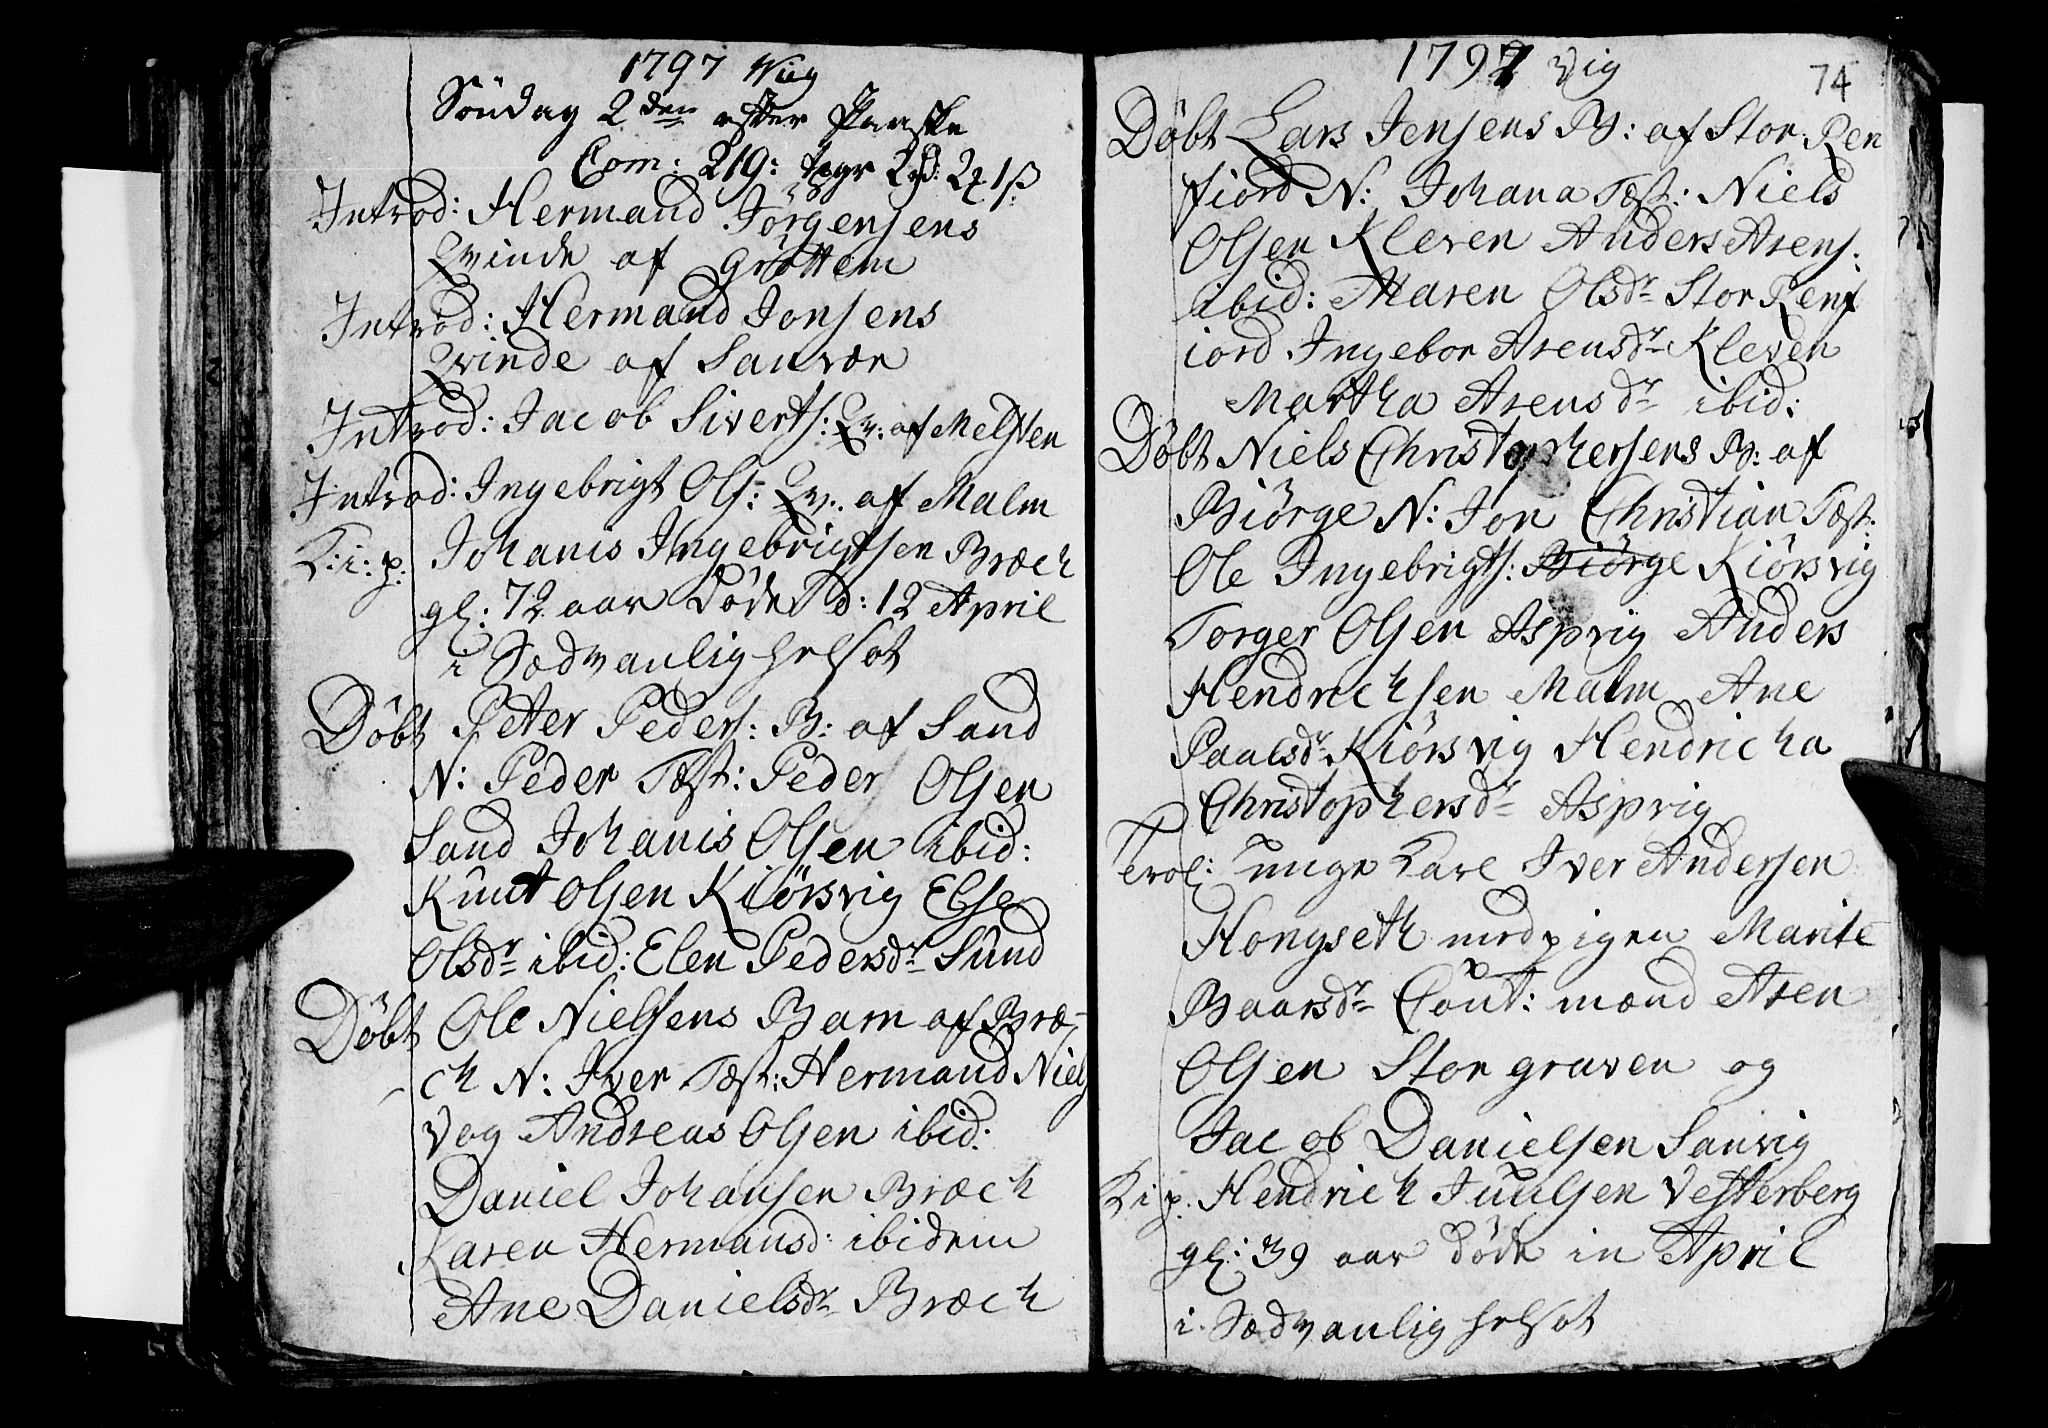 1797 Wiig
Söndag 2den efter Paaske
Com: 219:
Introd: Hermand Jörgensens
Qvinde af Gröttem
Introd: Hermand Jonsens
Qvinde af Sanvær
Introd: Jacob Siverts: Qv: af Melsten
Introd: Ingebrigt Ols: Qv. af Malm
K: i: p: Johanis Ingebrigtsen Bræck
gl: 72 aar Döde d: 12 April
i Sædvanlig helsot
Döbt Peter Peders: B: af Sand
N: Peder Tæst: Peder Olsen
Sand Johanis Olsen ibid:
Knut Olsen Kiörsvig Else
Olsdr ibid: Elen Pedersdr Sund
Döbt Ole Nielsens Barn af Bræ-
ck N: Iver Tæst: Hermand Niels
Vog Andreas Olsen ibid:
Daniel Johansen Bræck
Karen Hermansd: ibidem
Ane Danielsdr Bræck
1797 Vig
74
Döbt Lars Jensens B: af Stor Ren
fiord N: Johana Tæst: Niels
Olsen Kleven Anders Arens:
ibid: Maren Olsdr Stor Renf
iord Ingebor Arensdr Kleven
Martha Arensdr ibid:
Döbt Niels Christophersens B: af
Biörge N: Jon Christian Tæst:
Ole Ingebrigts: Biörge Kiörsvig
Torger Olsen Aspvig Anders
Hendrichsen Malm Ane
Paalsdr Kiörsvig Hendricha
Christophersdr Aspvig
Trol: unge Karl Iver Andersen
Hongseth med pigen Marite
Baarsdr Cout: mænd Aren
Olsen Storgraven og
Jacob Danielsen Sanvig
K i p. Hendrich Juulsen Vesterberg
gl: 39 aar döde in April
i. Sædvanlig helsot